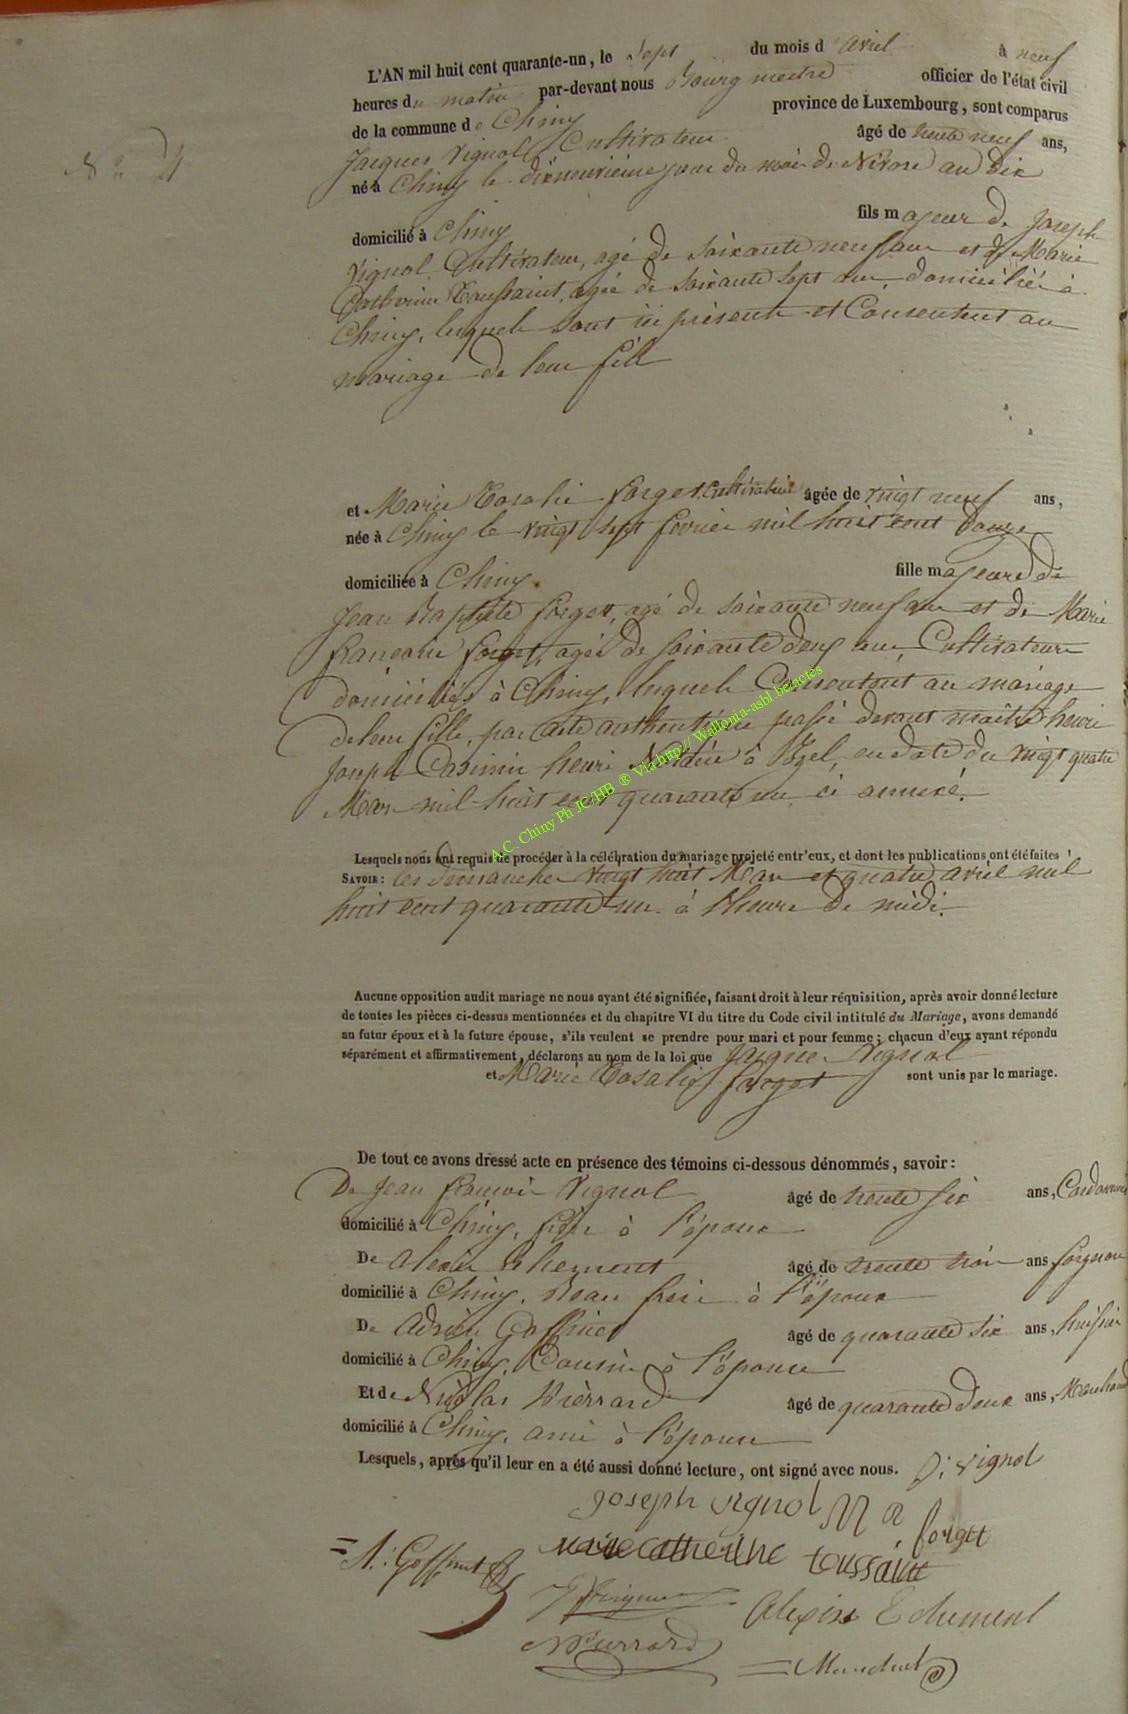 L'AN mil huit cent quarante-un, le Sept du mois d'avril à neuf
heures du matin par-devant nous Bourgmestre officier de l'état civil
de la commune de Chiny province de Luxembourg, sont comparus
Jacques Vignol Cultivateur âgé de trente neuf ans,
né à Chiny le dixneuvième jour du mois de Nivose an dix
N° 4
domicilié à Chiny fils majeur de Joseph
Vignol, Cultivateur, agé de soixante neuf ans et de Marie
Catherine Toussaint, agée de soixante sept ans, domiciliés à
Chiny, lesquels sont ici présents et Consentent au
mariage de leur fils
et Marie Rosalie forget Cultivatrice âgée de vingt neuf ans,
née à Chiny le vingt sept fevrier mil huit cent douze
domiciliée à Chiny. fille majeure de
Jean Baptiste forget, agé de soixante neuf ans et de Marie
françoise forget, agée de soixante deux ans, Cultivateurs
domiciliés à Chiny, lesquels Consentent au mariage
de leur fille, par acte authentique passé devant maître henri
Joseph Casimir henri Notaire à Izel, en date du vingt quatre
Mars mil huit cent quarante un, ci annexé.
A.C. Chiny Ph JC HB ® Via http// Wallonia-asbl be/actes
Lesquels nous ont requis de procéder à la célébration du mariage projeté entr'eux, et dont les publications ont été faites
SAVOIR: les dimanches vingt huit Mars et quatre avril mil
huit cent quarante un à l'heure de midi.
Aucune opposition audit mariage ne nous ayant été signifiée, faisant droit à leur réquisition, après avoir donné lecture
de toutes les pièces ci-dessus mentionnées et du chapitre VI du titre du Code civil intitulé du Mariage, avons demandé
au futur époux et à la future épouse, s'ils veulent se prendre pour mari et pour femme; chacun d'eux ayant répondu
séparément et affirmativement, déclarons au nom de la loi que Jacques Vignol
et Marie Rosalie forget sont unis par le mariage.
De tout ce avons dressé acte en présence des témoins ci-dessous dénommés, savoir:
De Jean francois Vignol âgé de trente six ans, Cordonnier
domicilié à Chiny, frère à l'époux
De Alexis âgé de trente trois ans forgeron
domicilié à Chiny, Beau frère à l'époux
De Adrien Goffinet âgé de quarante six ans, huissier
domicilié à Chiny, Cousin à l'épouse
Et de Nicolas Pierrard âgé de quarante deux ans, Marchand
domicilié à Chiny, ami à l'épouse
Lesquels, après qu'il leur en a été aussi donné lecture, ont signé avec nous. J. vignol
joseph vignol M R forget
marie catherine toussaint
A. Goffinet
Alexis
NPierrard